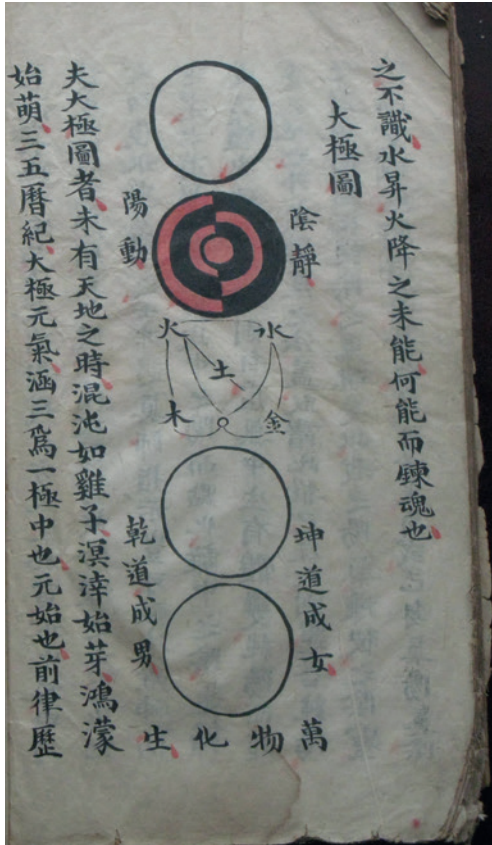 之不識水昇火降之未能何能而鍊魂也
大極圖
陰靜
陽動
水
火
土
金
木
坤道成女
乾道成男
萬物化生
夫大極圖者未有天地之時混沌如雞子溟涬始芽鴻濛
始萌三五曆紀大極元氣涵三爲一極中也元始也前律歷